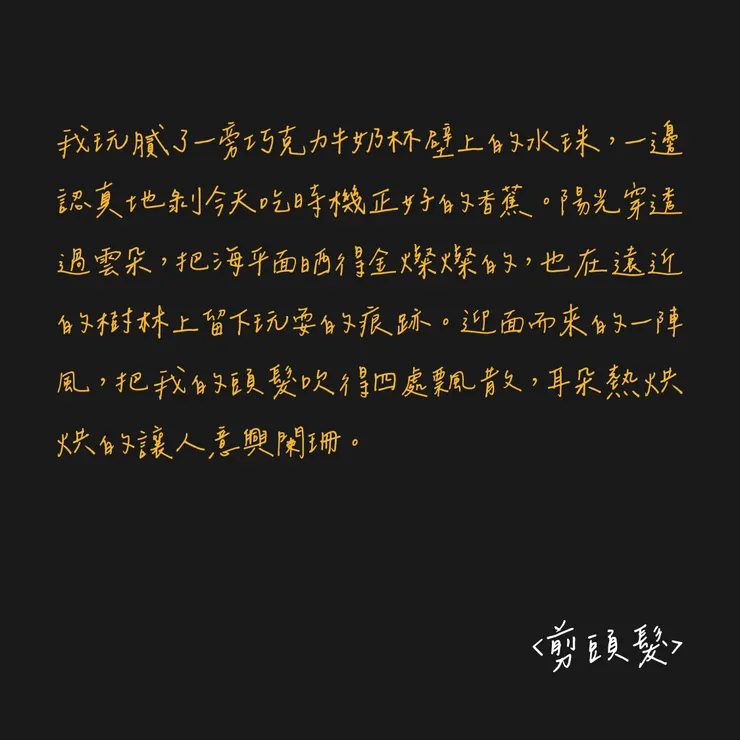 我玩膩了一旁巧克力牛奶杯壁上的水珠，一邊
認真地剝今天吃時機正好的香蕉。陽光穿透
過雲朵，把海平面晒得金燦燦的，也在遠近
的樹林上留下玩耍的痕跡。迎面而來的一陣
風，把我的頭髮吹得四處飄散，耳朵熱烘
烘的讓人意興闌珊。
<剪頭髮>